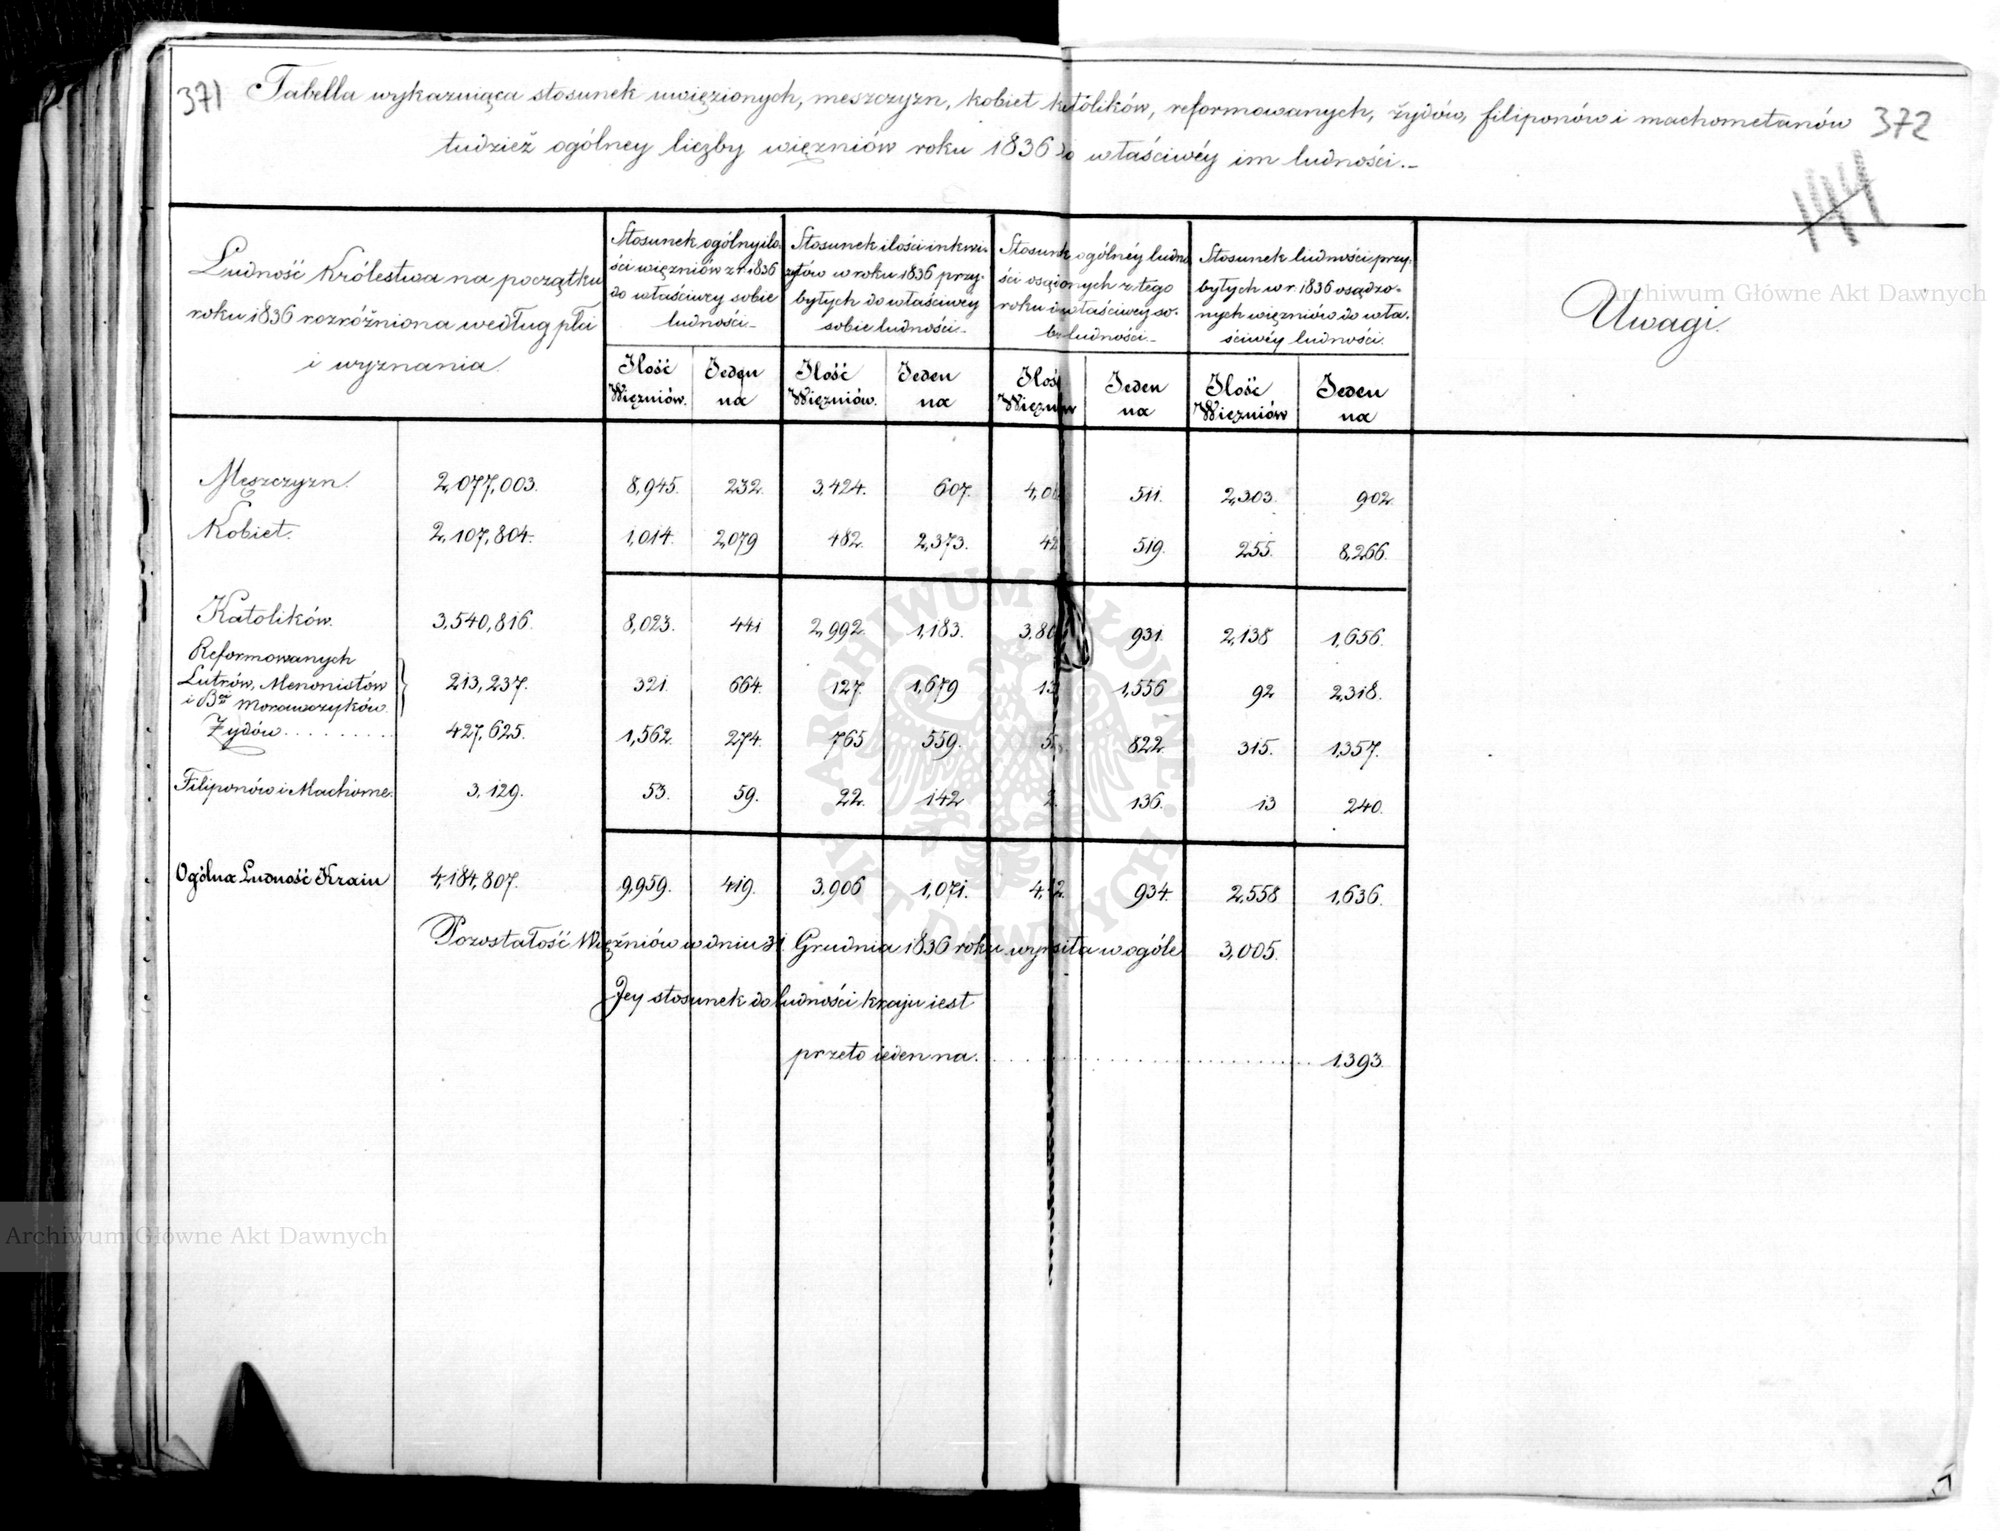 371 Tabella wykazuiąca stosunek uwięzionych, męszczyzn, kobiet katolików, reformowanych, żydów, filiponów i machometanów 372
tudzież ogólney liczby więzniów roku 1836 do właściwéy im ludności.
144
Ludność Królestwa na początku
roku 1836 rozróżniona według płci
i wyznania.
Stosunek ogólny ilo-
ści więzniów z r. 1836
do właściwey sobie
ludności
Stosunek ilości inkwi-
zytów w roku 1836 przy-
byłych do właściwey
sobie ludności
Stosunek ogólnéy ludno
ści osądzonych z tego
roku i właściwey so-
bie ludności
Stosunek ludności przy-
byłych w r. 1836 osądzo-
nych więzniów do wła-
ściwéy ludności.
Uwagi.
Ilość Więzniów. Jeden na Ilość Więzniów. Jeden na Ilość Jeden na Ilość Więzniów Jeden na
Męszczyzn. 2,077,003. 8,945. 232. 3,424. 607. 511. 2,303. 902.
Kobiet. 2,107,804. 1,014. 2,079 482. 2,373. 519. 255. 8,266.
Katolików. 3,540,816. 8,023. 441 2,992. 1,183. 931. 2,138 1,656.
Reformowanych
Lutrów, Menonistów
i Braci Morawczyków. 213,237. 321. 664. 127. 1,679 1,556 92 2,318.
Żydów . . . . . . . . 427,625. 1,562. 274. 765 559. 822. 315. 1,357.
Filiponów i Machome. 3,129. 53. 59. 22. 142 136. 13 240.
Ogólna Ludność Kraiu 4,184,807. 9,959. 419. 3,906 1,071. 934. 2,558 1,636.
Pozostałość Więźniów w dniu 31 Grudnia 1836 roku wynosiła w ogóle 3,005.
Jey stosunek do ludności kraju iest
przeto ieden na. . . . . . . . . . . . . . . . 1,393.
Archiwum Główne Akt Dawnych
Archiwum Główne Akt Dawnych
ARCHIWUM GŁÓWNE AKT DAWNYCH